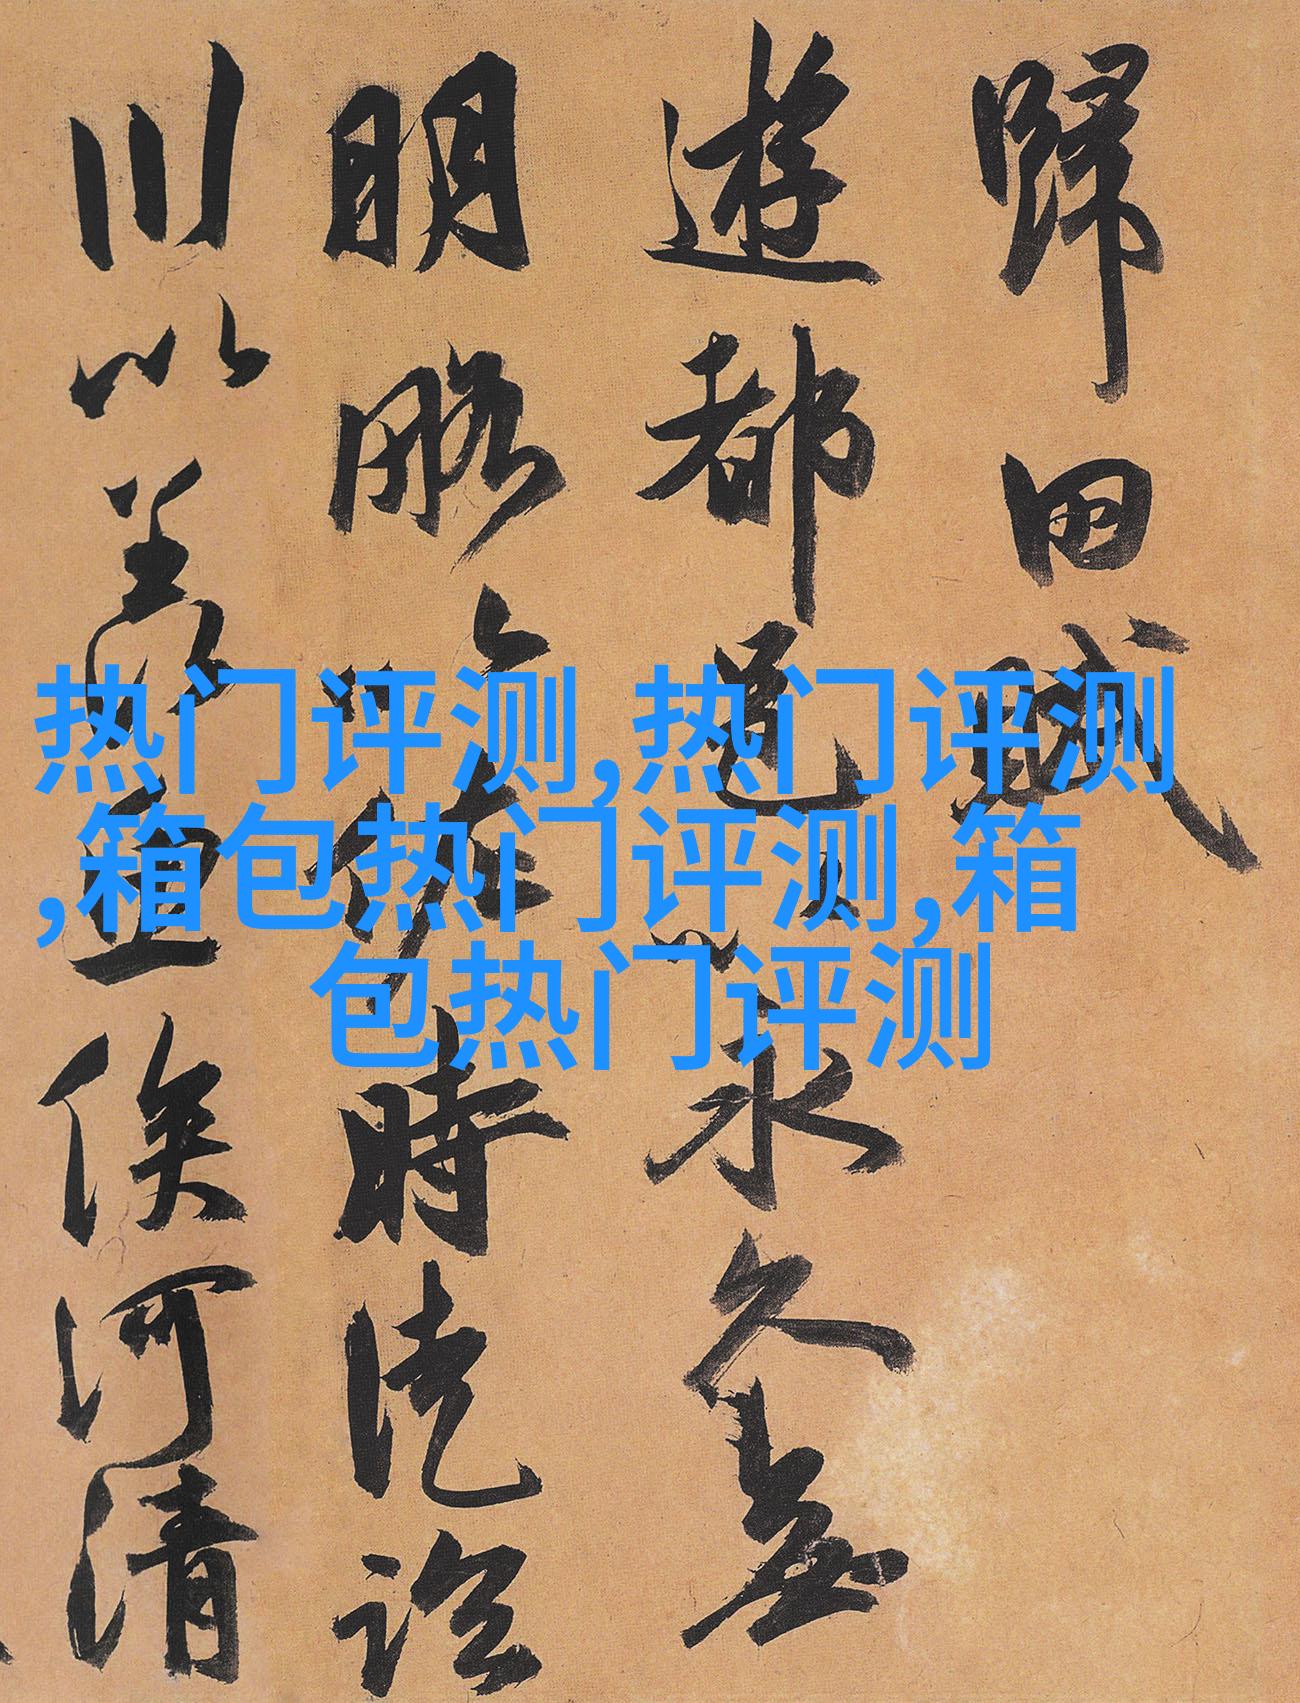 歸田賦
遊都邑以永久無
明略以佐時徒臨
川以羨魚俟河清
热门评测,热门评测
,箱包热门评测,箱
包热门评测